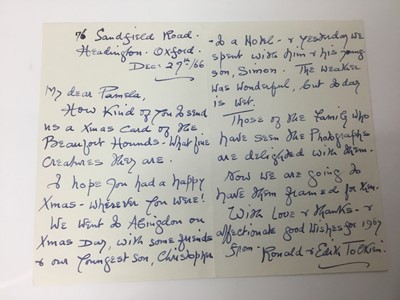 76 Sandfield Road.
Headington. Oxford.
Dec: 27th/66
My dear Pamela,
How kind of you to send
us a Xmas Card of the
Beaufort Hounds - What fine
creatures they are.
I hope you had a happy
Xmas - wherever you were!
We went to Abingdon on
Xmas Day, with some friends
& our youngest son, Christopher
to a Hotel - & yesterday we
spent with him & his young
son, Simon. The weather
was wonderful, but today
is wet.
Those of the family who
have seen the Photographs
are delighted with them.
Now we are going to
have them framed for
With Love & thanks - &
affectionate good wishes for 1967
from - Ronald & Edith Tolkien.